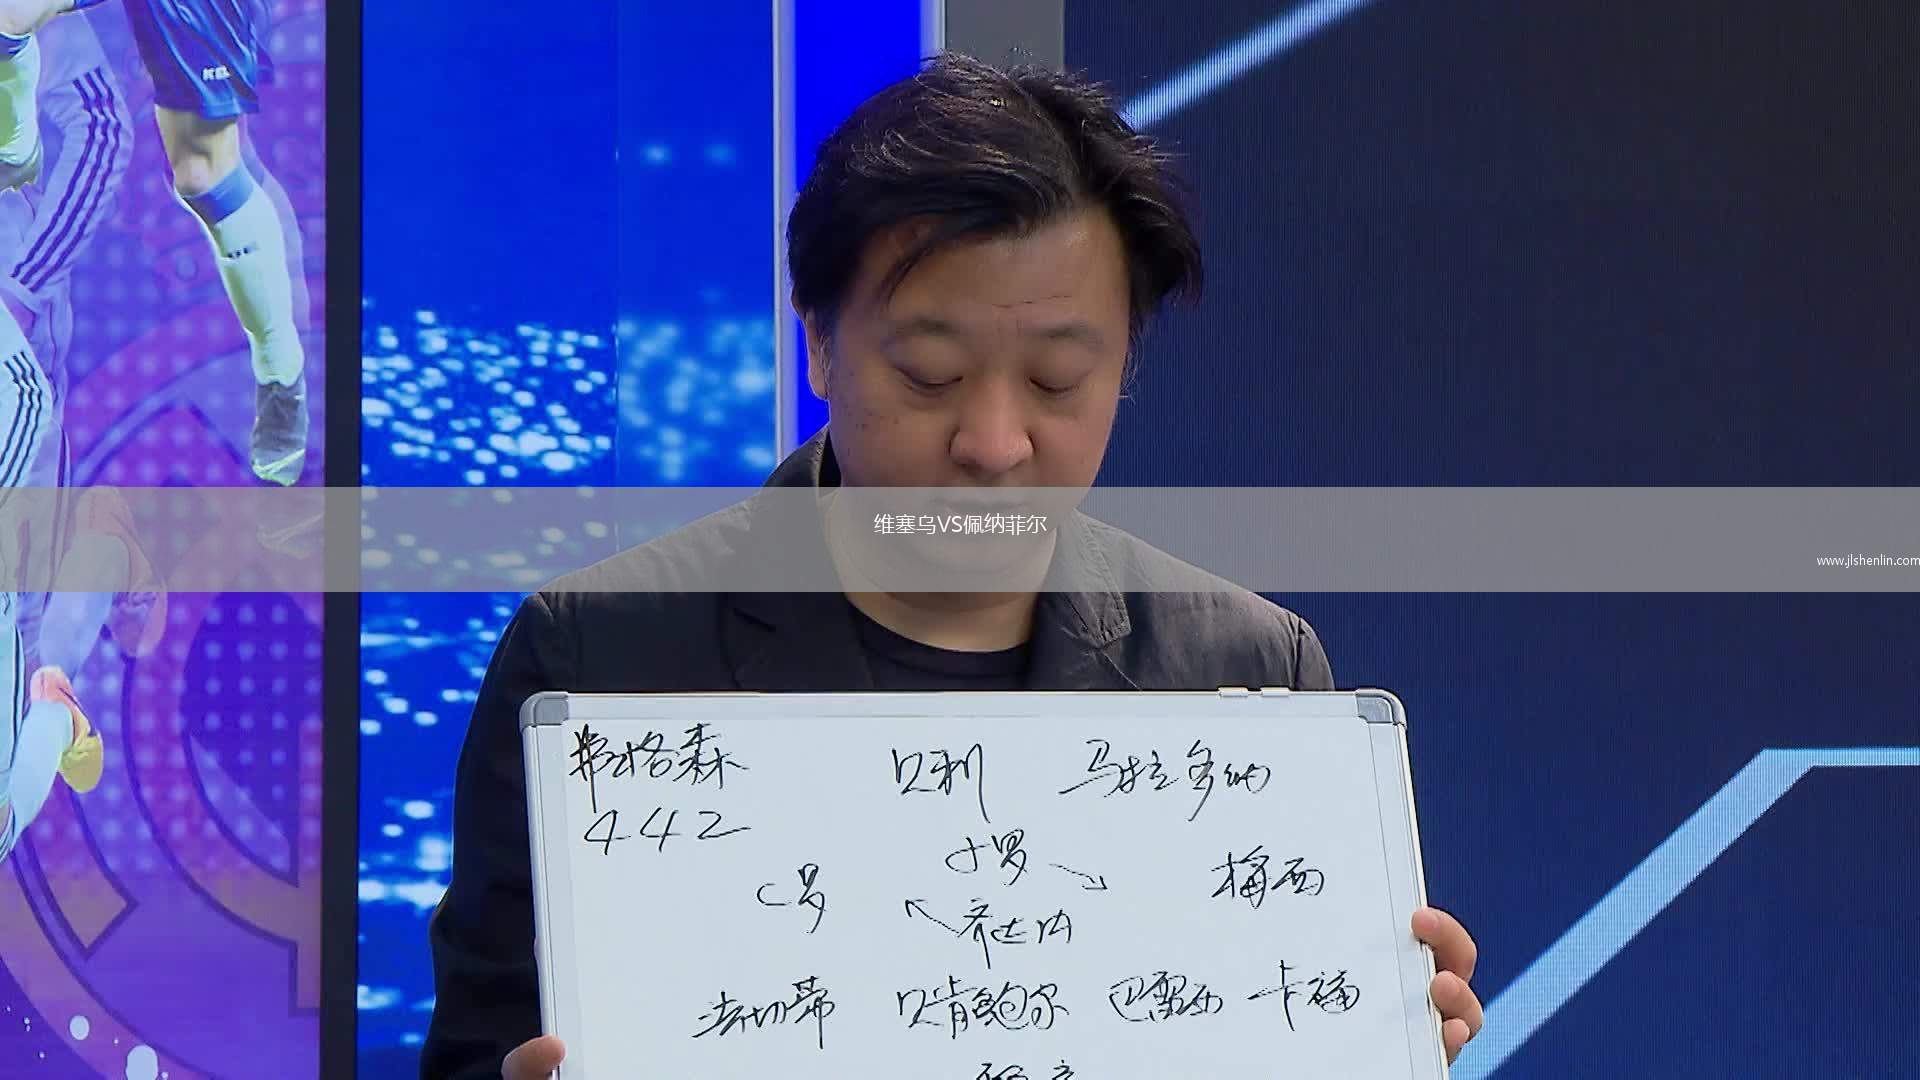 KEL
维塞乌VS佩纳菲尔
www.jlshenlin.com
弗格森 贝利 马拉多纳
442
小罗
C罗 梅西
齐达内
法切蒂 贝肯鲍尔 巴雷西 卡福